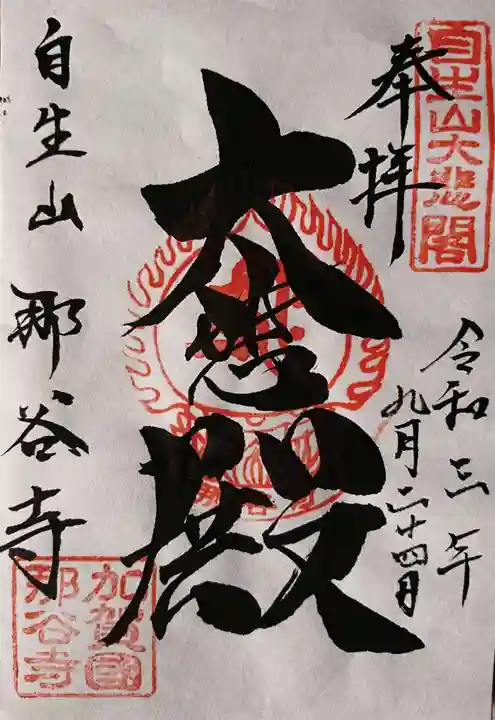 自生山大悲閣
奉拝
令和三年
九月二十四日
大悲殿
自生山 那谷寺
加賀國
那谷寺